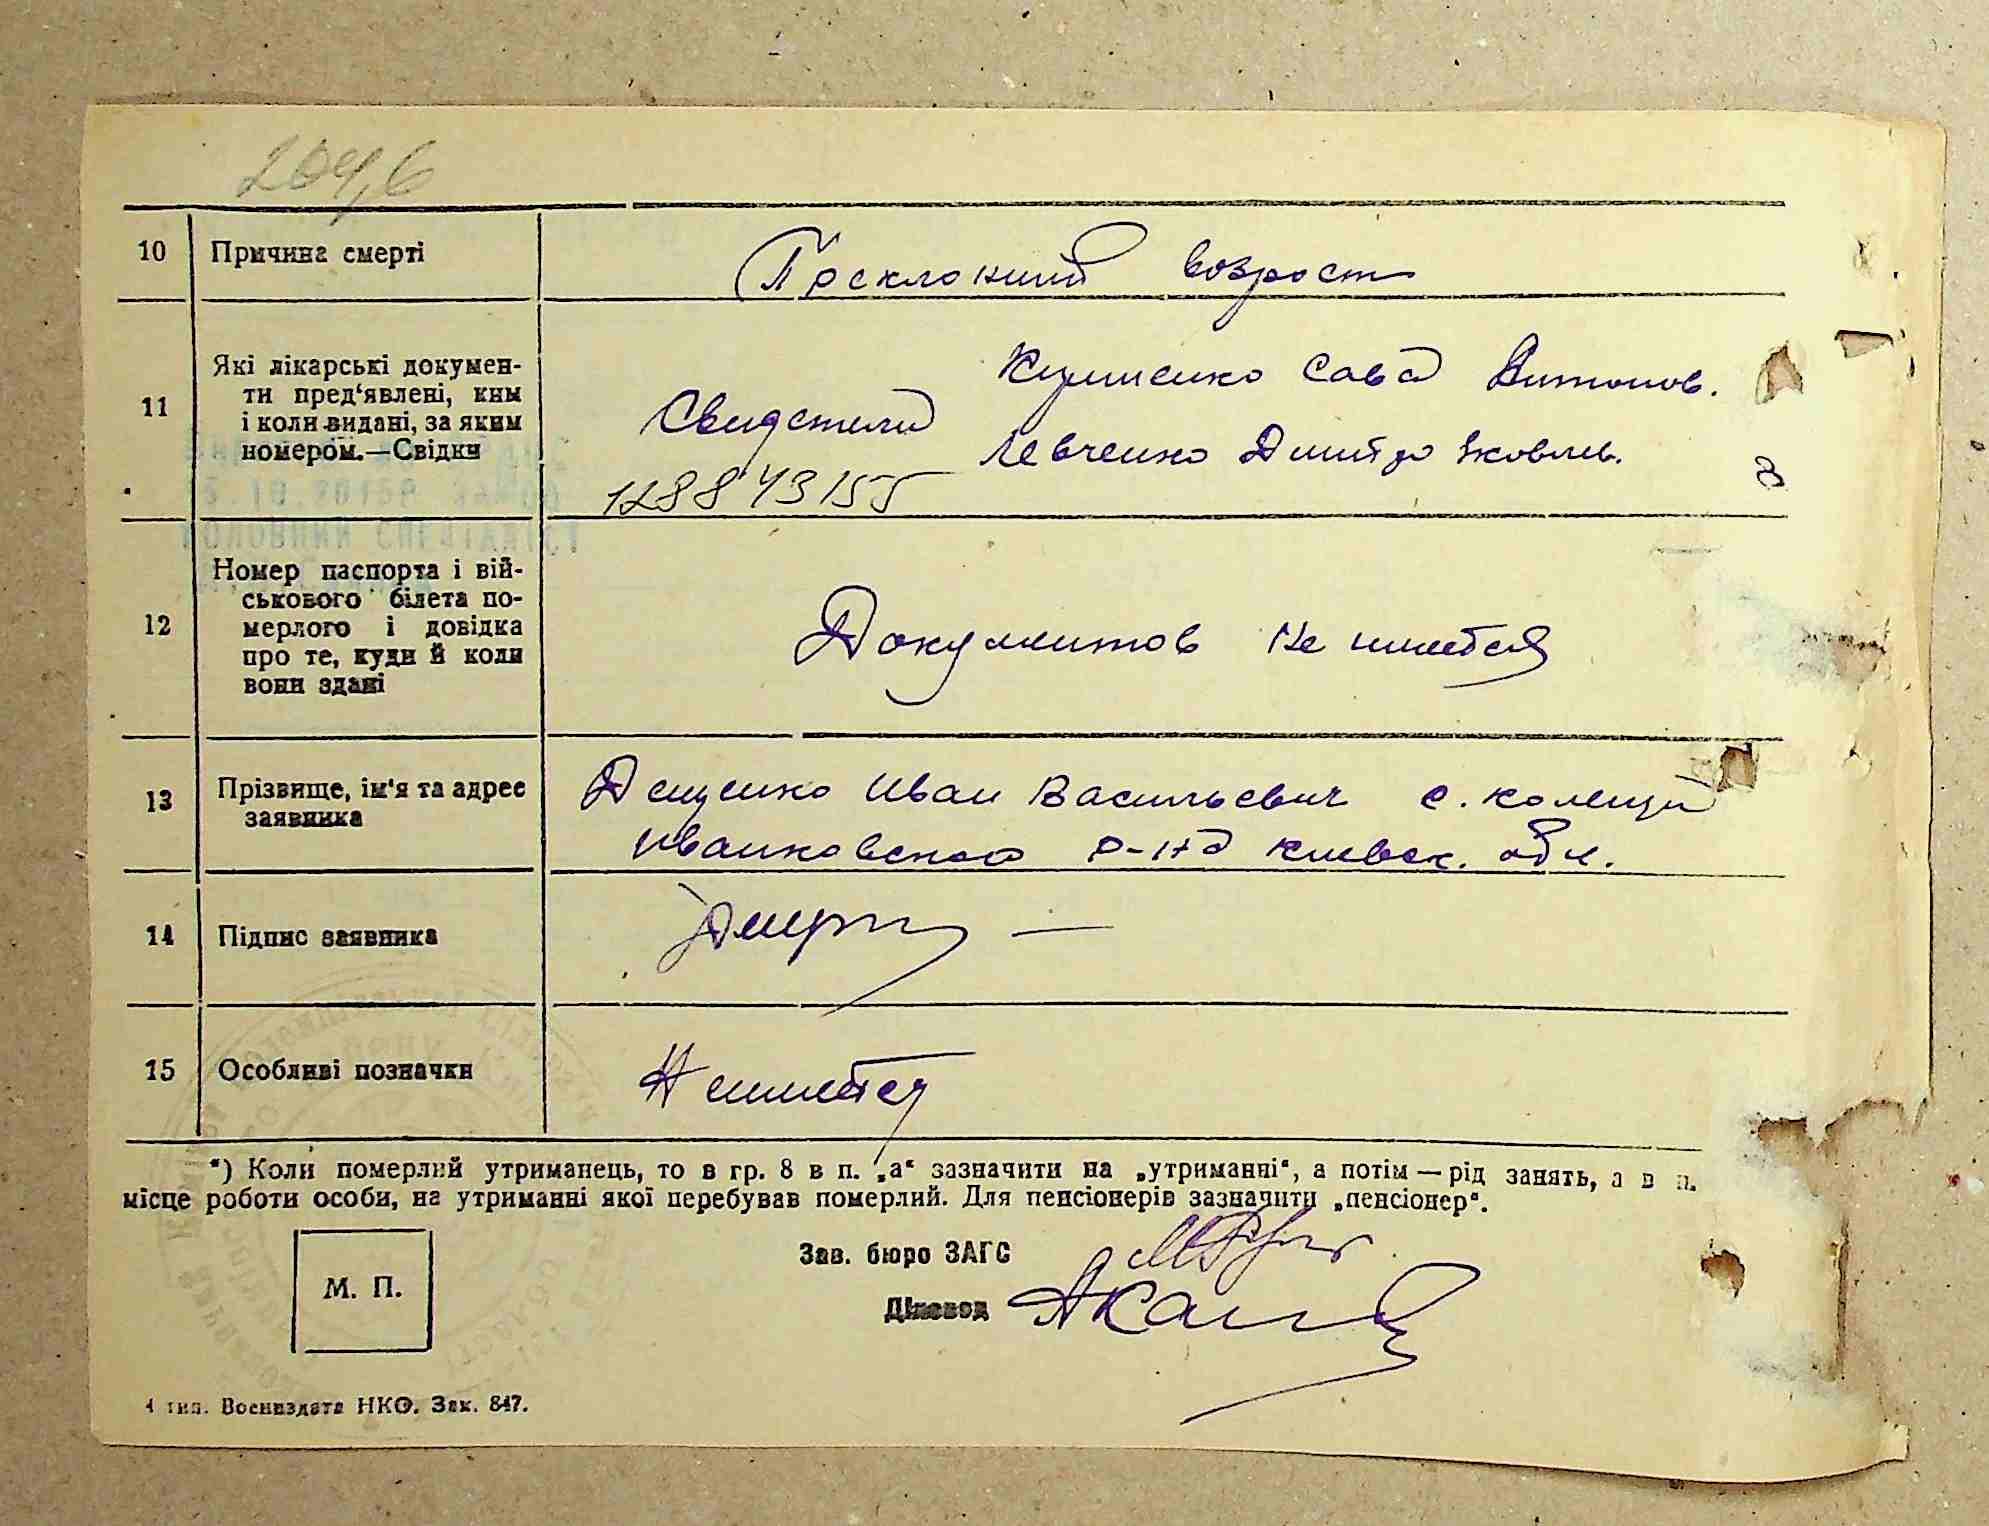 204,6
10 Причина смерті Преклоний возраст
11 Які лікарські докумен-
ти пред'явлені, ким
і коли видані, за яким
номером.—Свідки
Сава Антонов.
Свидетели
Левченко Дмитро Яковлев.
128843155
12 Номер паспорта і вій-
ськового білета по-
мерлого і довідка
про те, куди й коли
вони здані
Документов не имеется
13 Прізвище, ім'я та адрес
заявника
Деценко Иван Васильевич с. Коленци
Иванковского р-на Киевск. обл.
14 Підпис заявника
15 Особливі позначки Неимеется
*) Коли померлий утриманець, то в гр. 8 в п. „а“ зазначити на „утриманні“, а потім — рід занять, а в п.
місце роботи особи, на утриманні якої перебував померлий. Для пенсіонерів зазначити „пенсіонер“.
Зав. бюро ЗАГС
М. П.
Діловод
4 тип. Воениздата НКО. Зак. 847.